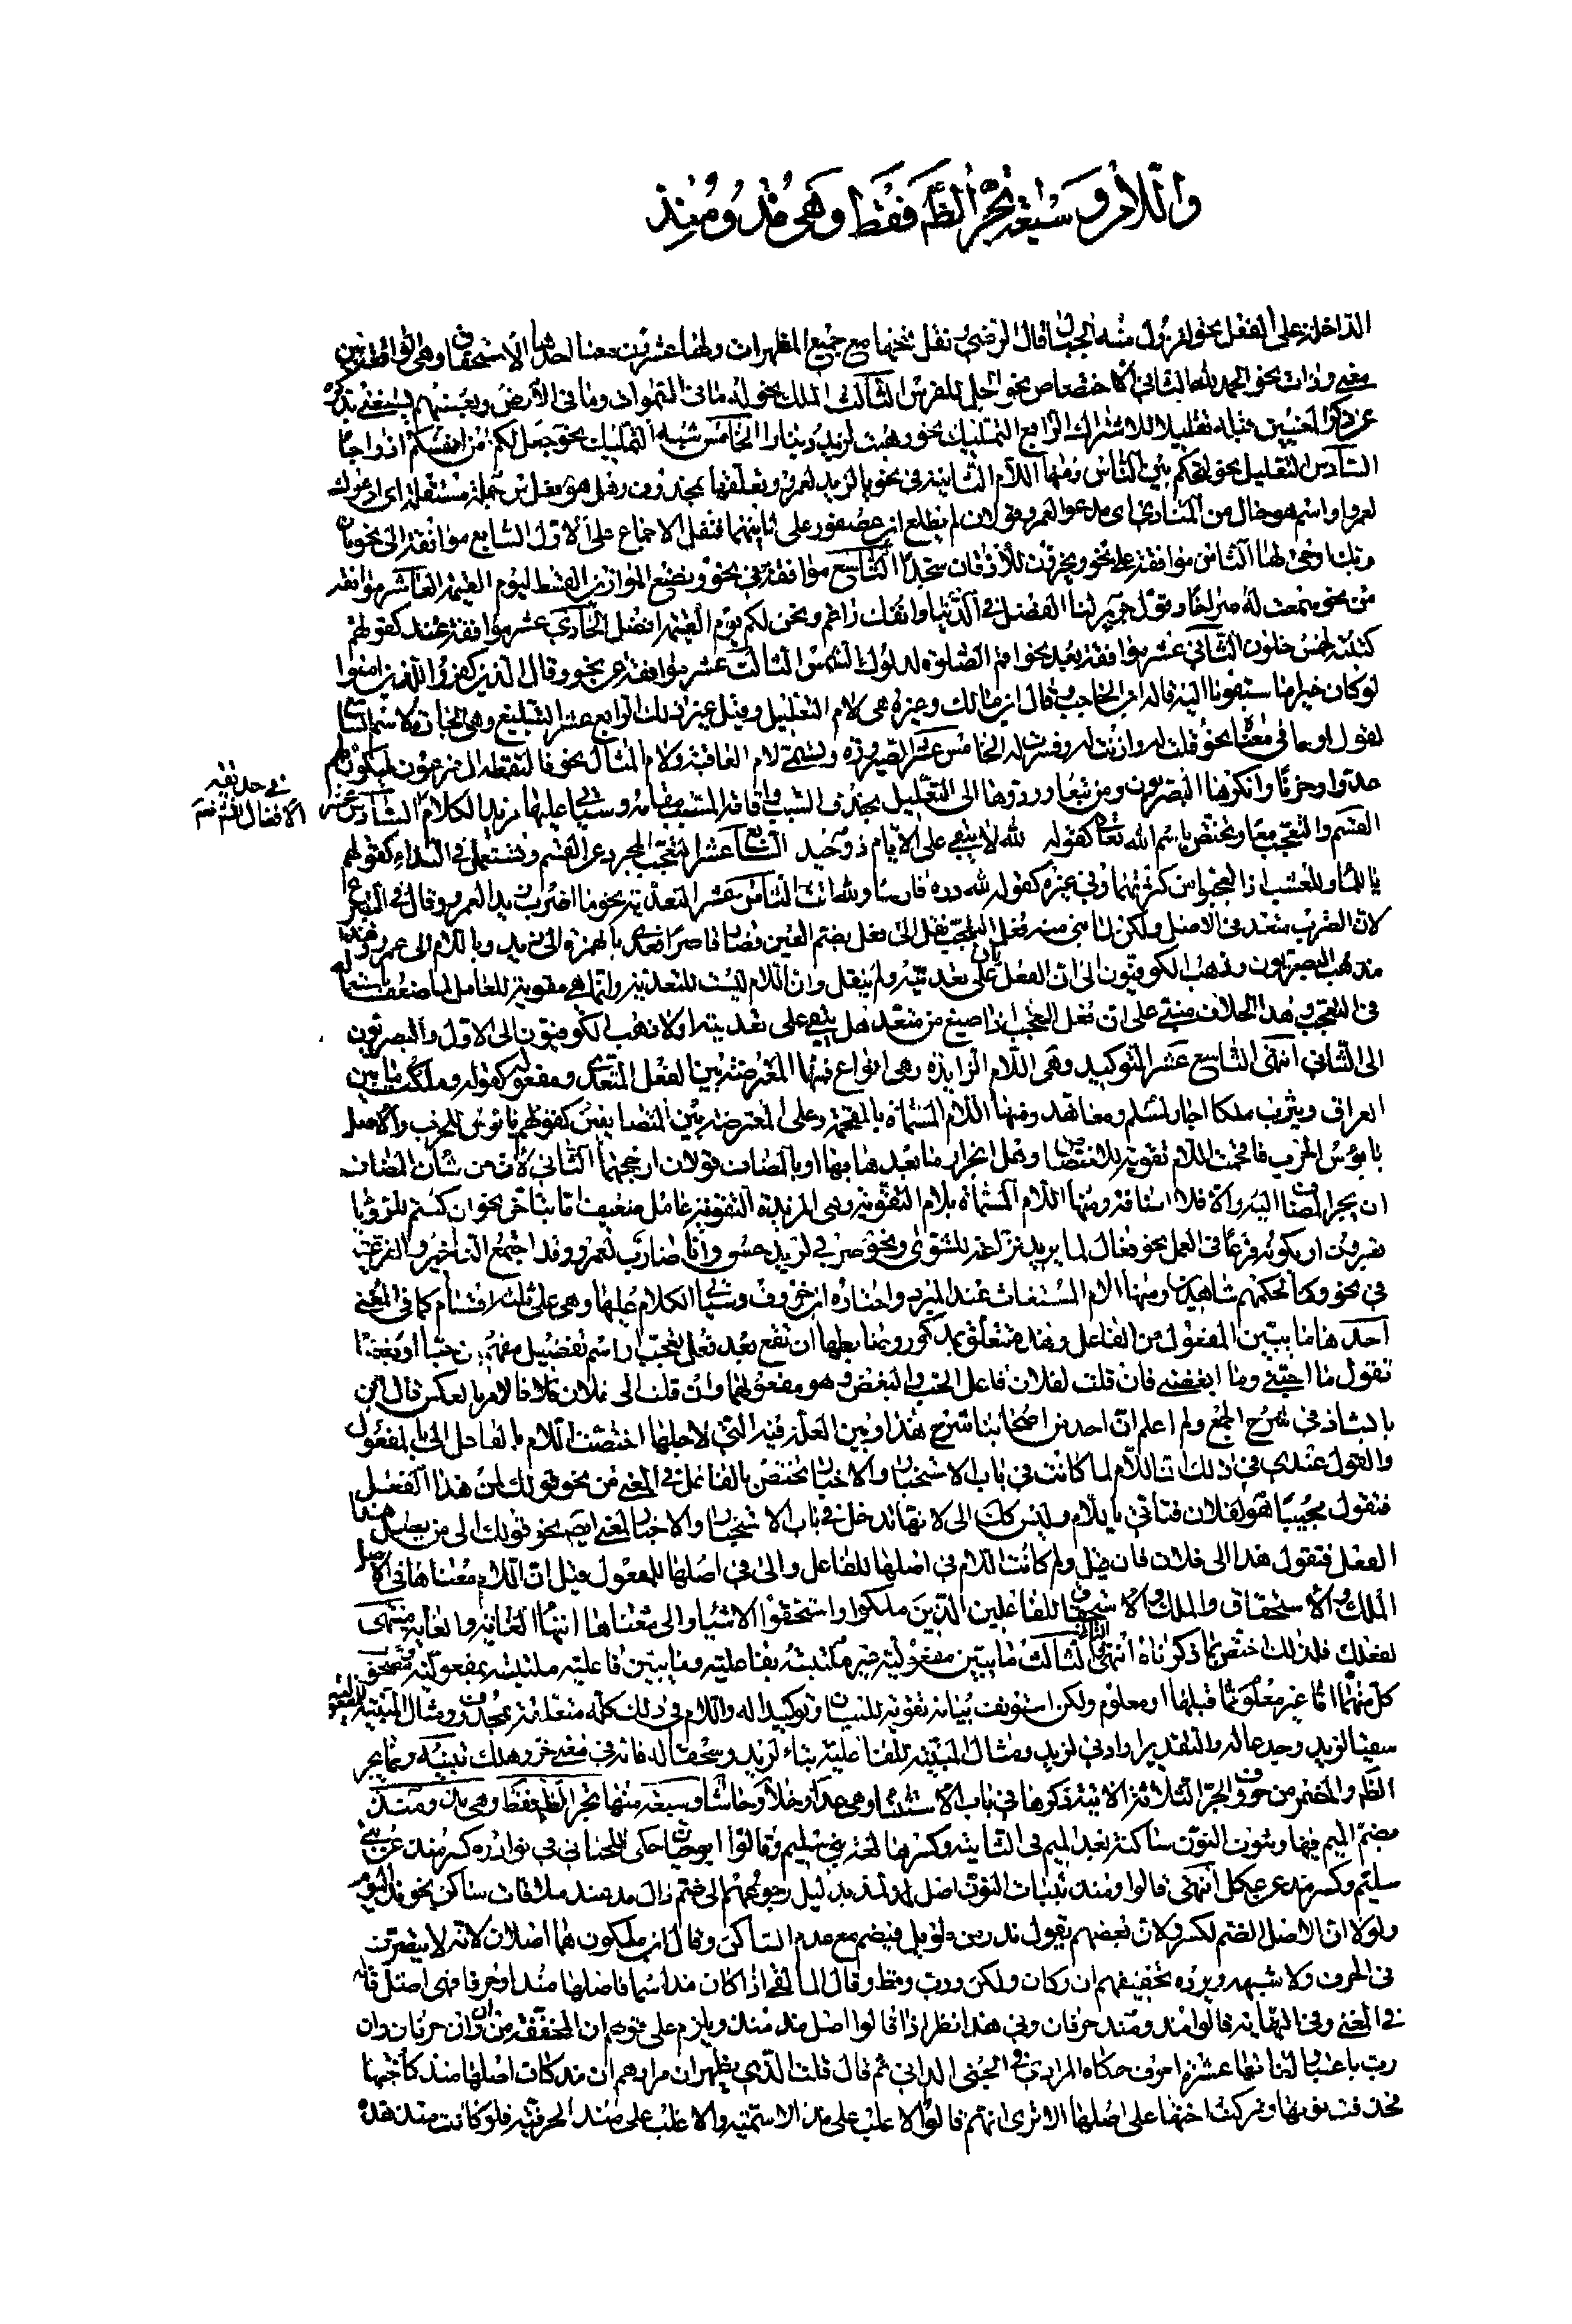 واللام وسبعة تجر الظاهر فقط وهي مذ ومنذ
الداخلة على الفعل نحو لتزول منه الجبال قال الرضي نقل فتحها مع جميع المظهرات ولها عشرون معنا احدها الاستحقاق وهي الواقعة بين
معنى وذات نحو الحمد لله الثاني الاختصاص نحو الجل للفرس الثالث الملك نحو له ما في السموات وما في الارض وبعضهم يستغني بذكره
السادس التعليل نحو لتحكم بين الناس ومنها اللام الثانية في نحو يا لزيد لعمرو وتعلقها بمحذوف وقيل هو فعل من جملة مستقلة اى ادعوك
لعمرو او اسم هو حال من المنادى اى مدعوا لعمرو قولان لم يطلع ابن عصفور على ثانيهما فنقل الاجماع على الاول السابع موافقة الى نحو بان
ربك اوحى لها الثامن موافقة على نحو ويخرون للاذقان سجدا التاسع موافقة في نحو ونضع الموازين القسط ليوم القيمة العاشر موافقة
من نحو سمعت له صراخا وقول جرير لنا الفضل في الدنيا وانفك راغم ونحن لكم يوم القيمة افضل الحادي عشر موافقة عند كقولهم
كتبته لخمس خلون الثاني عشر موافقة بعد نحو اقم الصلوة لدلوك الشمس الثالث عشر موافقة عن نحو وقال الذين كفروا للذين امنوا
لو كان خيرا ما سبقونا اليه قاله ابن الحاجب وقال ابن مالك وغيره هي لام التعليل وقيل غير ذلك الرابع عشر التبليغ وهي الجارة لاسم السامع
لقول او ما في معناه نحو قلت له واذنت له وفسرت له الخامس عشر الصيرورة وتسمى لام العاقبة ولام المئال نحو فالتقطه ال فرعون ليكون لهم
عدوا وحزنا وانكرها البصريون ومن تبعهم وردوها الى التعليل بحذف السبب واقامة المسبب مقامه وسياتي عليها مزيد الكلام السادس عشر
القسم والتعجب معا وتختص باسم الله تعالى كقوله لله لا يبقى على الايام ذو حيد السابع عشر التعجب المجرد عن القسم وتستعمل في النداء كقولهم
يا للماء ويا للعشب اذا تعجبوا من كثرتهما وفي غيره كقوله لله دره فارسا ولله انت الثامن عشر التعدية نحو ما اضرب زيدا لعمرو وقال في
لان الضرب متعد في الاصل ولكن لما بني منه فعل التعجب نقل الى فعل بضم العين فصار قاصرا فعدي بالهمزة الى زيد وباللام الى عمرو هذا
مذهب البصريون وذهب الكوفيون الى ان الفعل باق على تعديته ولم ينقل وان اللام ليست للتعدية وانما هي مقوية للعامل لما ضعف باستعماله
في التعجب وهذا الخلاف مبني على ان فعل التعجب اذا صيغ من متعد هل يبقى على تعديته اولا فذهب الكوفيون الى الاول والبصريون
الى الثاني انتهى التاسع عشر التوكيد وهي اللام الزايدة وهي انواع منها المعترضة بين الفعل المتعدي ومفعوله كقوله وملكت ما بين
العراق ويثرب ملكا اجار لمسلم ومعاهد ومنها اللام المسماة بالمقحمة وهي المعترضة بين المتضايفين كقولهم يا بؤس للحرب والاصل
يا بؤس الحرب فاقحمت اللام تقوية للاختصاص وهل انجرار ما بعدها بها او بالمضاف قولان ارجحهما الثاني لان من شان المضاف
ان يجر المضاف اليه ومنها اللام المسماة بلام التقوية وهي المزيدة لتقوية عامل ضعيف اما بتاخر نحو ان كنتم للرؤيا
تعبرون او بكونه فرعا في العمل نحو فعال لما يريد نزاعة للشوى ونحو ضربي لزيد حسن وانا ضارب لعمرو وقد اجتمع التاخير والفرعية
في نحو وكنا لحكمهم شاهدين ومنها لام المستغاث عند المبرد واختاره ابن خروف وسياتي الكلام عليها وهي على ثلثة اقسام كما في المغني
احدها ما يبين المفعول من الفاعل وهذه متعلق بمذكور وضابطها ان تقع بعد فعل تعجب او اسم تفضيل مفهمين حبا او بغضا
تقول ما احبني وما ابغضني فان قلت لفلان فاعل الحب والبغض وهو مفعولهما وان قلت الى فلان فالامر بالعكس قال ابن
بابشاذ في شرح الجمع ولم اعلم ان احدا من اصحابنا شرح هذا وبين العلة فيه التي لاجلها اختصت اللام بالفاعل والى بالمفعول
والقول عندي في ذلك ان اللام لما كانت في باب الاستخبار والاخبار تختص بالفاعل في المعنى من نحو قولك لمن هذا الفعل
فتقول مجيبا هو لفلان فتاتي باللام وليس كك الى لانها تدخل في باب الاستخبار والاخبار لمعنى ايضا نحو قولك الى من يصل هذا
الفعل فتقول هذا الى فلان فان قيل ولم كانت اللام في اصلها للفاعل والى في اصلها للمفعول قيل ان اللام معناها في الاصل
الملك والاستحقاق والملك والاستحقاق للفاعلين الذين ملكوا واستحقوا الاشياء والى معناها انتهاء الغاية والغاية منتهى
لفعلك فلذلك اختص بما ذكرناه انتهى الثاني والثالث ما يبين مفعولية غير ملتبسة بفاعلية وما يبين فاعلية ملتبسة بمفعولية ومصحوب
كل منهما اما غير معلوم مما قبلها او معلوم ولكن استونف بيانه تقوية للبيان وتوكيدا له واللام في ذلك كله متعلقة بمحذوف ومثال المبينة للمفعولية
سقيا لزيد وجدعا له والتقدير ارادتي لزيد ومثال المبينة للفاعلية تبا لزيد وسحقا له فانه في معنى خسر وهلك تنبيه وبما يجر
الظاهر والمضمر من حروف الجر الثلاثة الاتية ذكرها في باب الاستثناء وهي عدا وخلا وحاشا وسبعة منها تجر الظاهر فقط وهي مذ ومنذ
بضم الميم فيهما وبنون النون ساكنة بعد الميم في الثانية وكسرها لغة بني سليم وقالوا ابو حيان حكى اللحياني في نوادره كسر منذ عن بني
سليم وكسر مذ عن عكل انتهى قالوا ومنذ باثبات النون اصل لمذ بدليل رجوعهم الى ضم ذال مذ عند ملاقات ساكن نحو مذ اليوم
ولولا ان الاصل الضم لكسر ولان بعضهم يقول مذ زمن طويل فيضم مع عدم الساكن وقال ابن ملكون هما اصلان لانه لا يتصرف
في الحرف ولا شبهه ويرده تخفيفهم ان وكان ولكن ورب وقط وقال المالقي اذا كان مذ اسما فاصلها منذ او حرفا فهي اصل قاله
في المغني وفي النهاية قالوا مذ ومنذ حرفان وفي هذا نظر اذا قالوا اصل مذ منذ ويلزم على قولهم ان المخففة من ان وان حرفان وان
رب باعتبار لغاتها عشرة احرف حكاه المرادي في الجنى الداني ثم قال قلت الذي يظهر ان مرادهم ان مذ كان اصلها منذ كاختها
فحذفت نونها وتركت اختها على اصلها الا ترى انهم قالوا الاغلب على مذ الاسمية والاغلب على منذ الحرفية فلو كانت منذ هذه